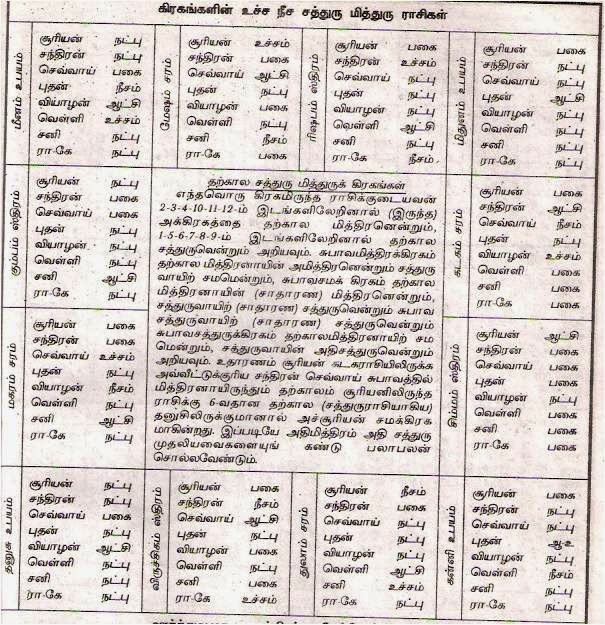 கிரகங்களின் உச்ச நீச சத்துரு மித்துரு ராசிகள்
மீனம் உபயம்
சூரியன் நட்பு
சந்திரன் நட்பு
செவ்வாய் பகை
புதன் நீசம்
வியாழன் ஆட்சி
வெள்ளி உச்சம்
சனி நட்பு
ரா-கே நட்பு
மேஷம் சரம்
சூரியன் உச்சம்
சந்திரன் பகை
செவ்வாய் ஆட்சி
புதன் நட்பு
வியாழன் நட்பு
வெள்ளி பகை
சனி நீசம்
ரா-கே பகை
ரிஷபம் ஸ்திரம்
சூரியன் பகை
சந்திரன் உச்சம்
செவ்வாய் நட்பு
புதன் நட்பு
வியாழன் நட்பு
வெள்ளி ஆட்சி
சனி நட்பு
ரா-கே நீசம்
மிதுனம் உபயம்
சூரியன் பகை
சந்திரன் நட்பு
செவ்வாய் நட்பு
புதன் ஆட்சி
வியாழன் பகை
வெள்ளி நட்பு
சனி நட்பு
ரா-கே நட்பு
கும்பம் ஸ்திரம்
சூரியன் நட்பு
சந்திரன் பகை
செவ்வாய் பகை
புதன் நட்பு
வியாழன் நட்பு
வெள்ளி நட்பு
சனி ஆட்சி
ரா-கே நட்பு
தற்கால சத்துரு மித்துருக் கிரகங்கள்
எந்தவொரு கிரகமிருந்த ராசிக்குடையவன்
2-3-4-10-11-12-ம் இடங்களிலேறினால் (இருந்த)
அக்கிரகத்தை தற்கால மித்திரனென்றும்,
1-5-6-7-8-9-ம் இடங்களிலேறினால் தற்கால
சத்துருவென்றும் அறியவும். சுபாவமித்ரக்கிரகம்
தற்கால மித்திரனாயின் அமித்திரனென்றும் சத்துரு
வாயிற் சமமென்றும், சுபாவசமக் கிரகம் தற்கால
மித்திரனாயின் (சாதாரண) மித்திரனென்றும்,
சத்துருவாயிற் (சாதாரண) சத்துருவென்றும் சுபாவ
சத்துருவாயிற் (சாதாரண) சத்துருவென்றும்
சுபாவசத்துருக்கிரகம் தற்காலமித்திரனாயிற் சம
மென்றும், சத்துருவாயின் அதிசத்துருவென்றும்
அறியவும். உதாரணம் சூரியன் கடகராசியிலிருக்க
அவ்வீட்டுக்குரிய சந்திரன் செவ்வாய் சுபாவத்தில்
மித்திரனாயிருந்தும் தற்காலம் சூரியனிலிருந்த
ராசிக்கு 6-வதான தற்கால (சத்துருராசியாகிய)
தனுசிலிருக்குமானால் அச்சூரியன் சமக்கிரக
மாகிறது. இப்படியே அதிமித்திரம் அதி சத்துரு
முதலியவைகளையுங் கண்டு பலாபலன்
சொல்லவேண்டும்.
கடகம் சரம்
சூரியன் பகை
சந்திரன் ஆட்சி
செவ்வாய் நீசம்
புதன் பகை
வியாழன் உச்சம்
வெள்ளி பகை
சனி பகை
ரா-கே பகை
மகரம் சரம்
சூரியன் பகை
சந்திரன் பகை
செவ்வாய் உச்சம்
புதன் நட்பு
வியாழன் நீசம்
வெள்ளி நட்பு
சனி ஆட்சி
ரா-கே நட்பு
சிம்மம் ஸ்திரம்
சூரியன் ஆட்சி
சந்திரன் நட்பு
செவ்வாய் நட்பு
புதன் நட்பு
வியாழன் நட்பு
வெள்ளி பகை
சனி பகை
ரா-கே பகை
தனுசு உபயம்
சூரியன் நட்பு
சந்திரன் நட்பு
செவ்வாய் பகை
புதன் நட்பு
வியாழன் ஆட்சி
வெள்ளி நட்பு
சனி நட்பு
ரா-கே நட்பு
விருச்சிகம் ஸ்திரம்
சூரியன் பகை
சந்திரன் நீசம்
செவ்வாய் ஆட்சி
புதன் நட்பு
வியாழன் பகை
வெள்ளி நட்பு
சனி பகை
ரா-கே உச்சம்
துலாம் சரம்
சூரியன் நீசம்
சந்திரன் நட்பு
செவ்வாய் நட்பு
புதன் நட்பு
வியாழன் பகை
வெள்ளி ஆட்சி
சனி உச்சம்
ரா-கே நட்பு
கன்னி உபயம்
சூரியன் பகை
சந்திரன் நட்பு
செவ்வாய் பகை
புதன் ஆ-உ
வியாழன் நட்பு
வெள்ளி நீசம்
சனி நட்பு
ரா-கே நட்பு